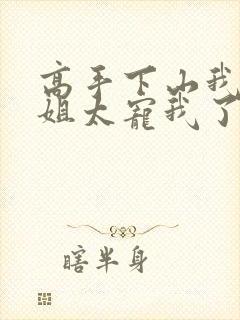 高手下山我
姐太宠我了
瞎半身